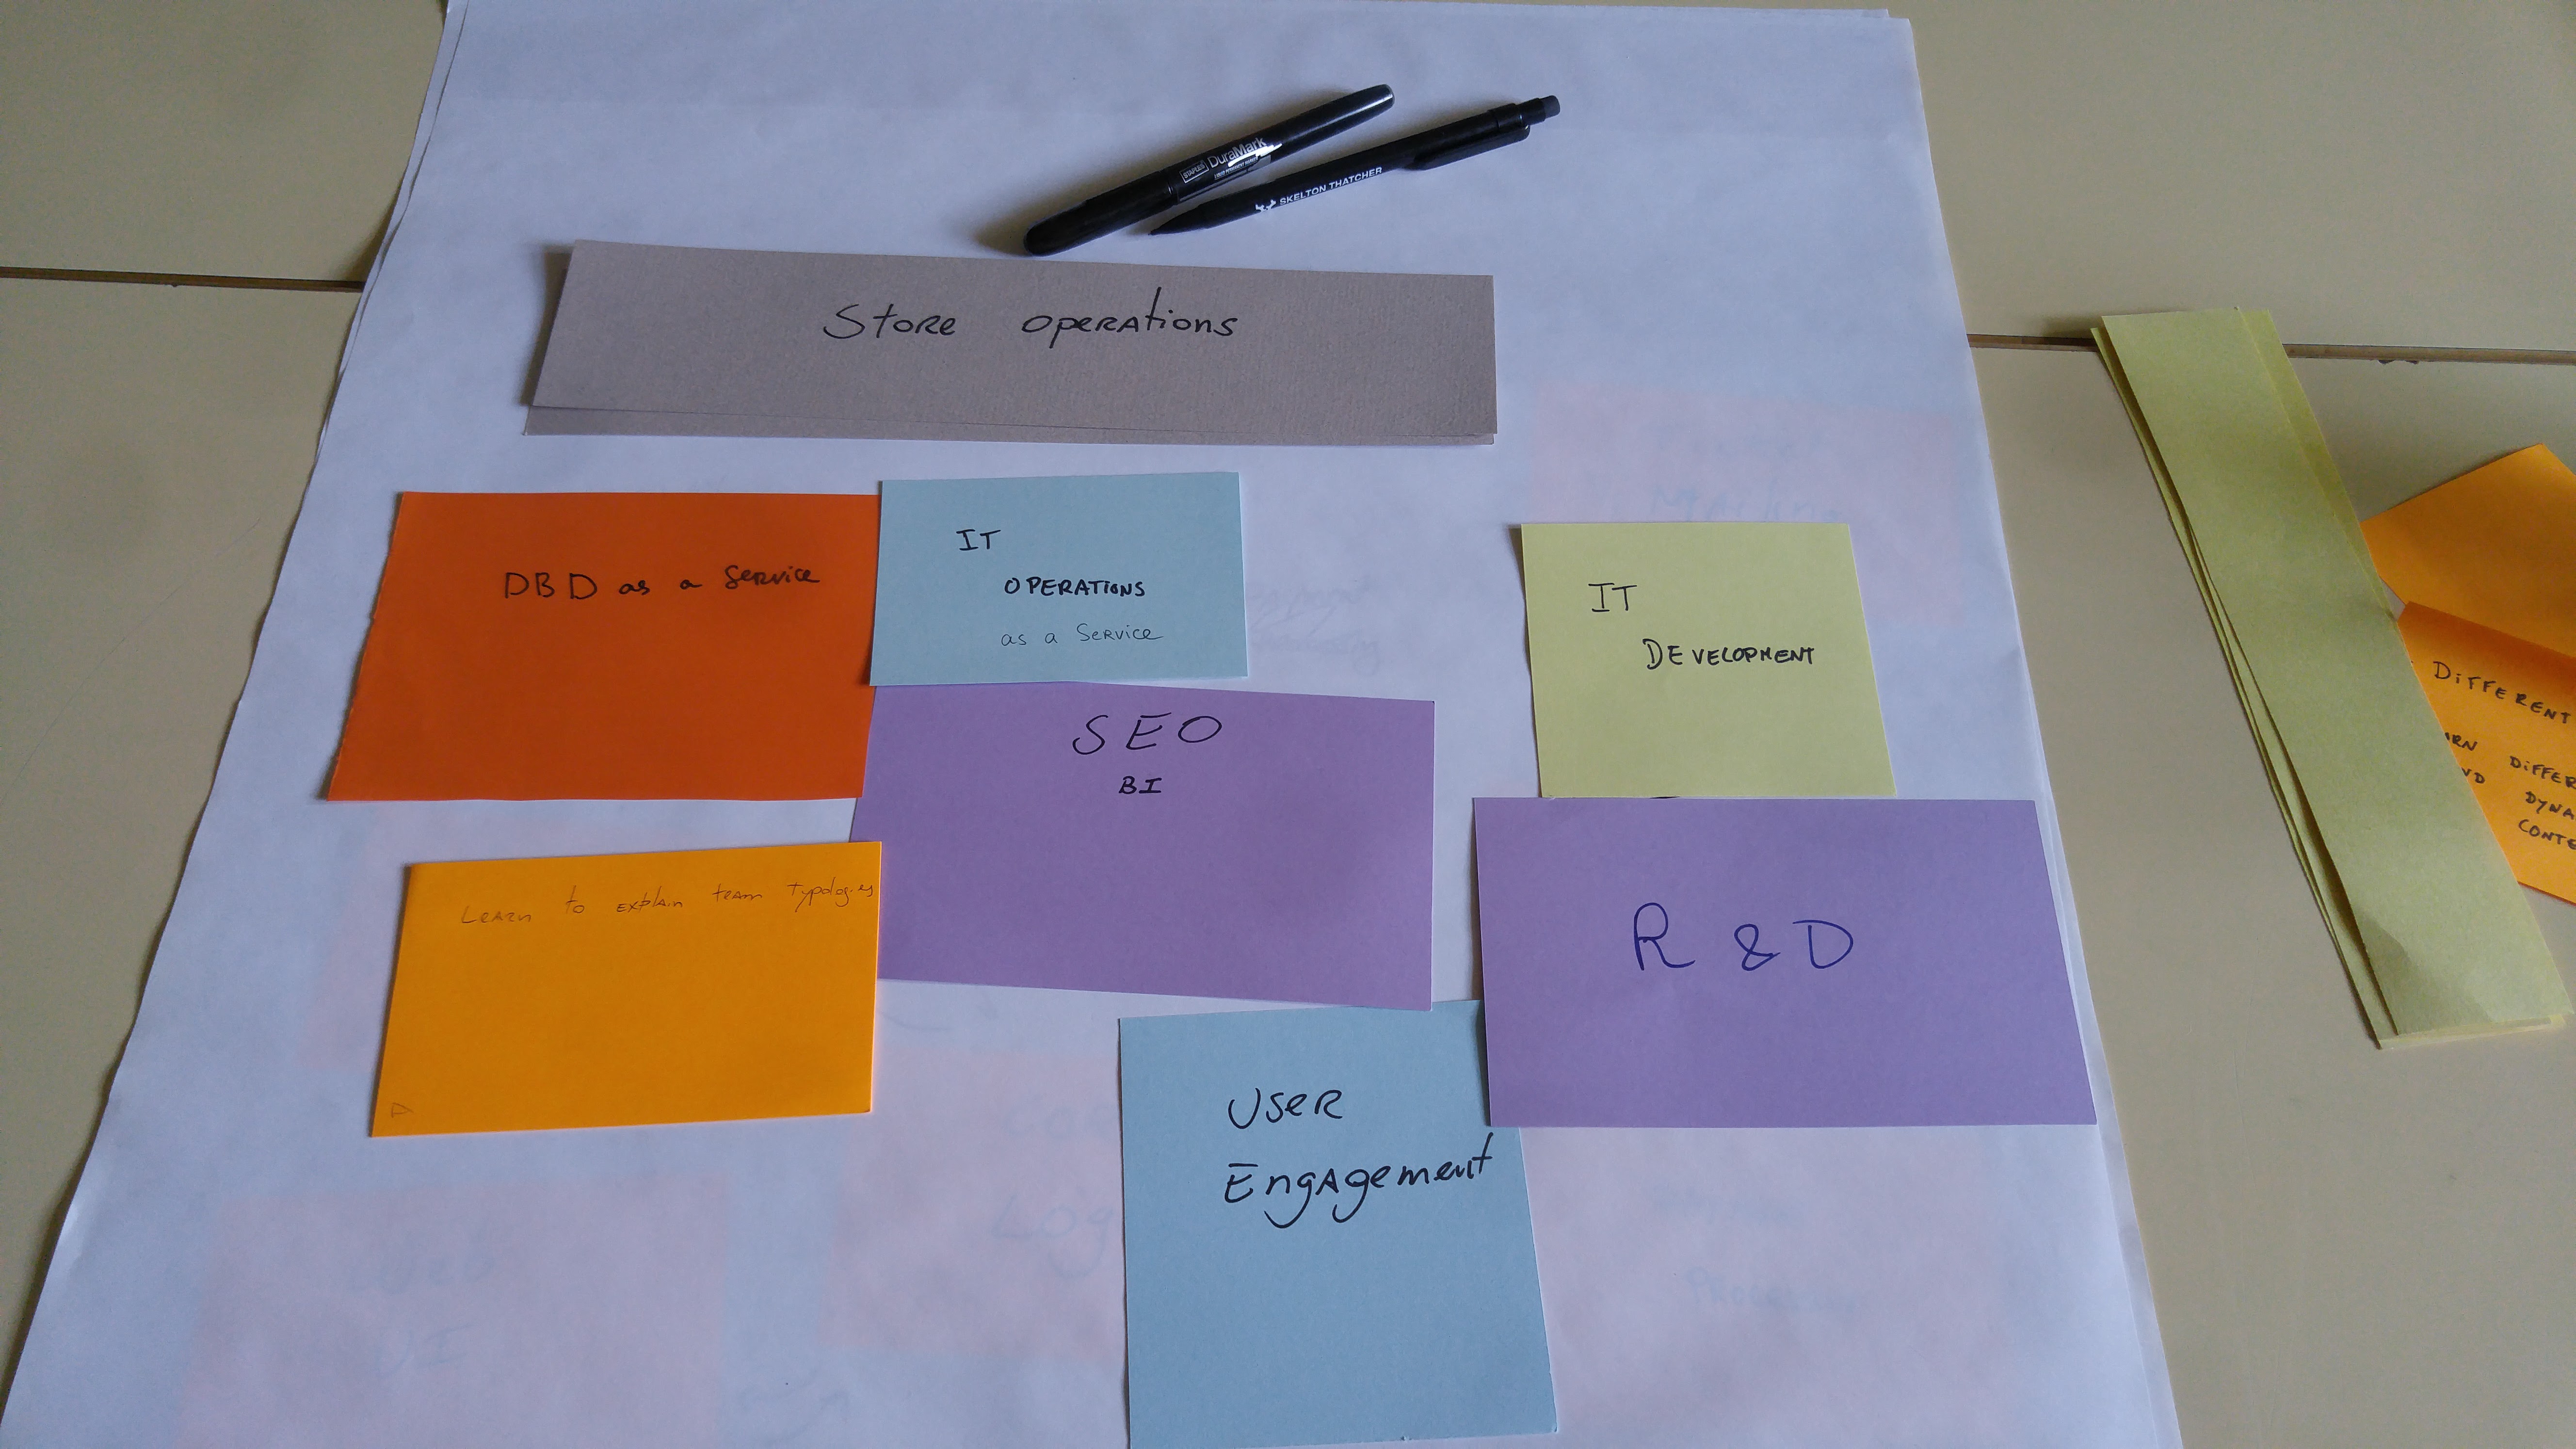 STAPLES DuraMark
SKELTON THATCHER
Store operations
DBD as a Service
IT
OPERATIONS
as a Service
IT
DEVELOPMENT
SEO
BI
Learn to explain team typologies
R & D
User
Engagement
DiFFERENT